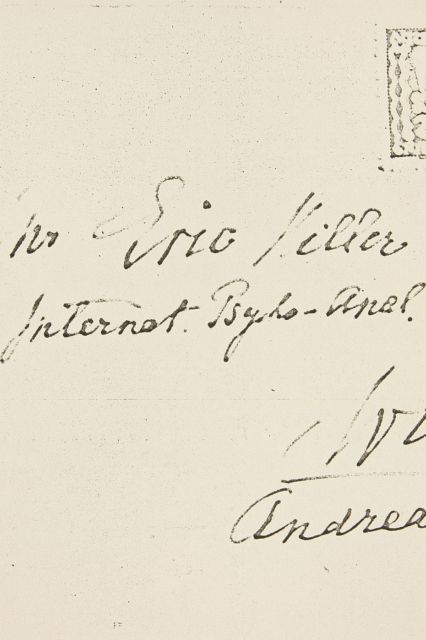 Mr Eric Hiller
Internat. Psycho-Anal.
Andrea